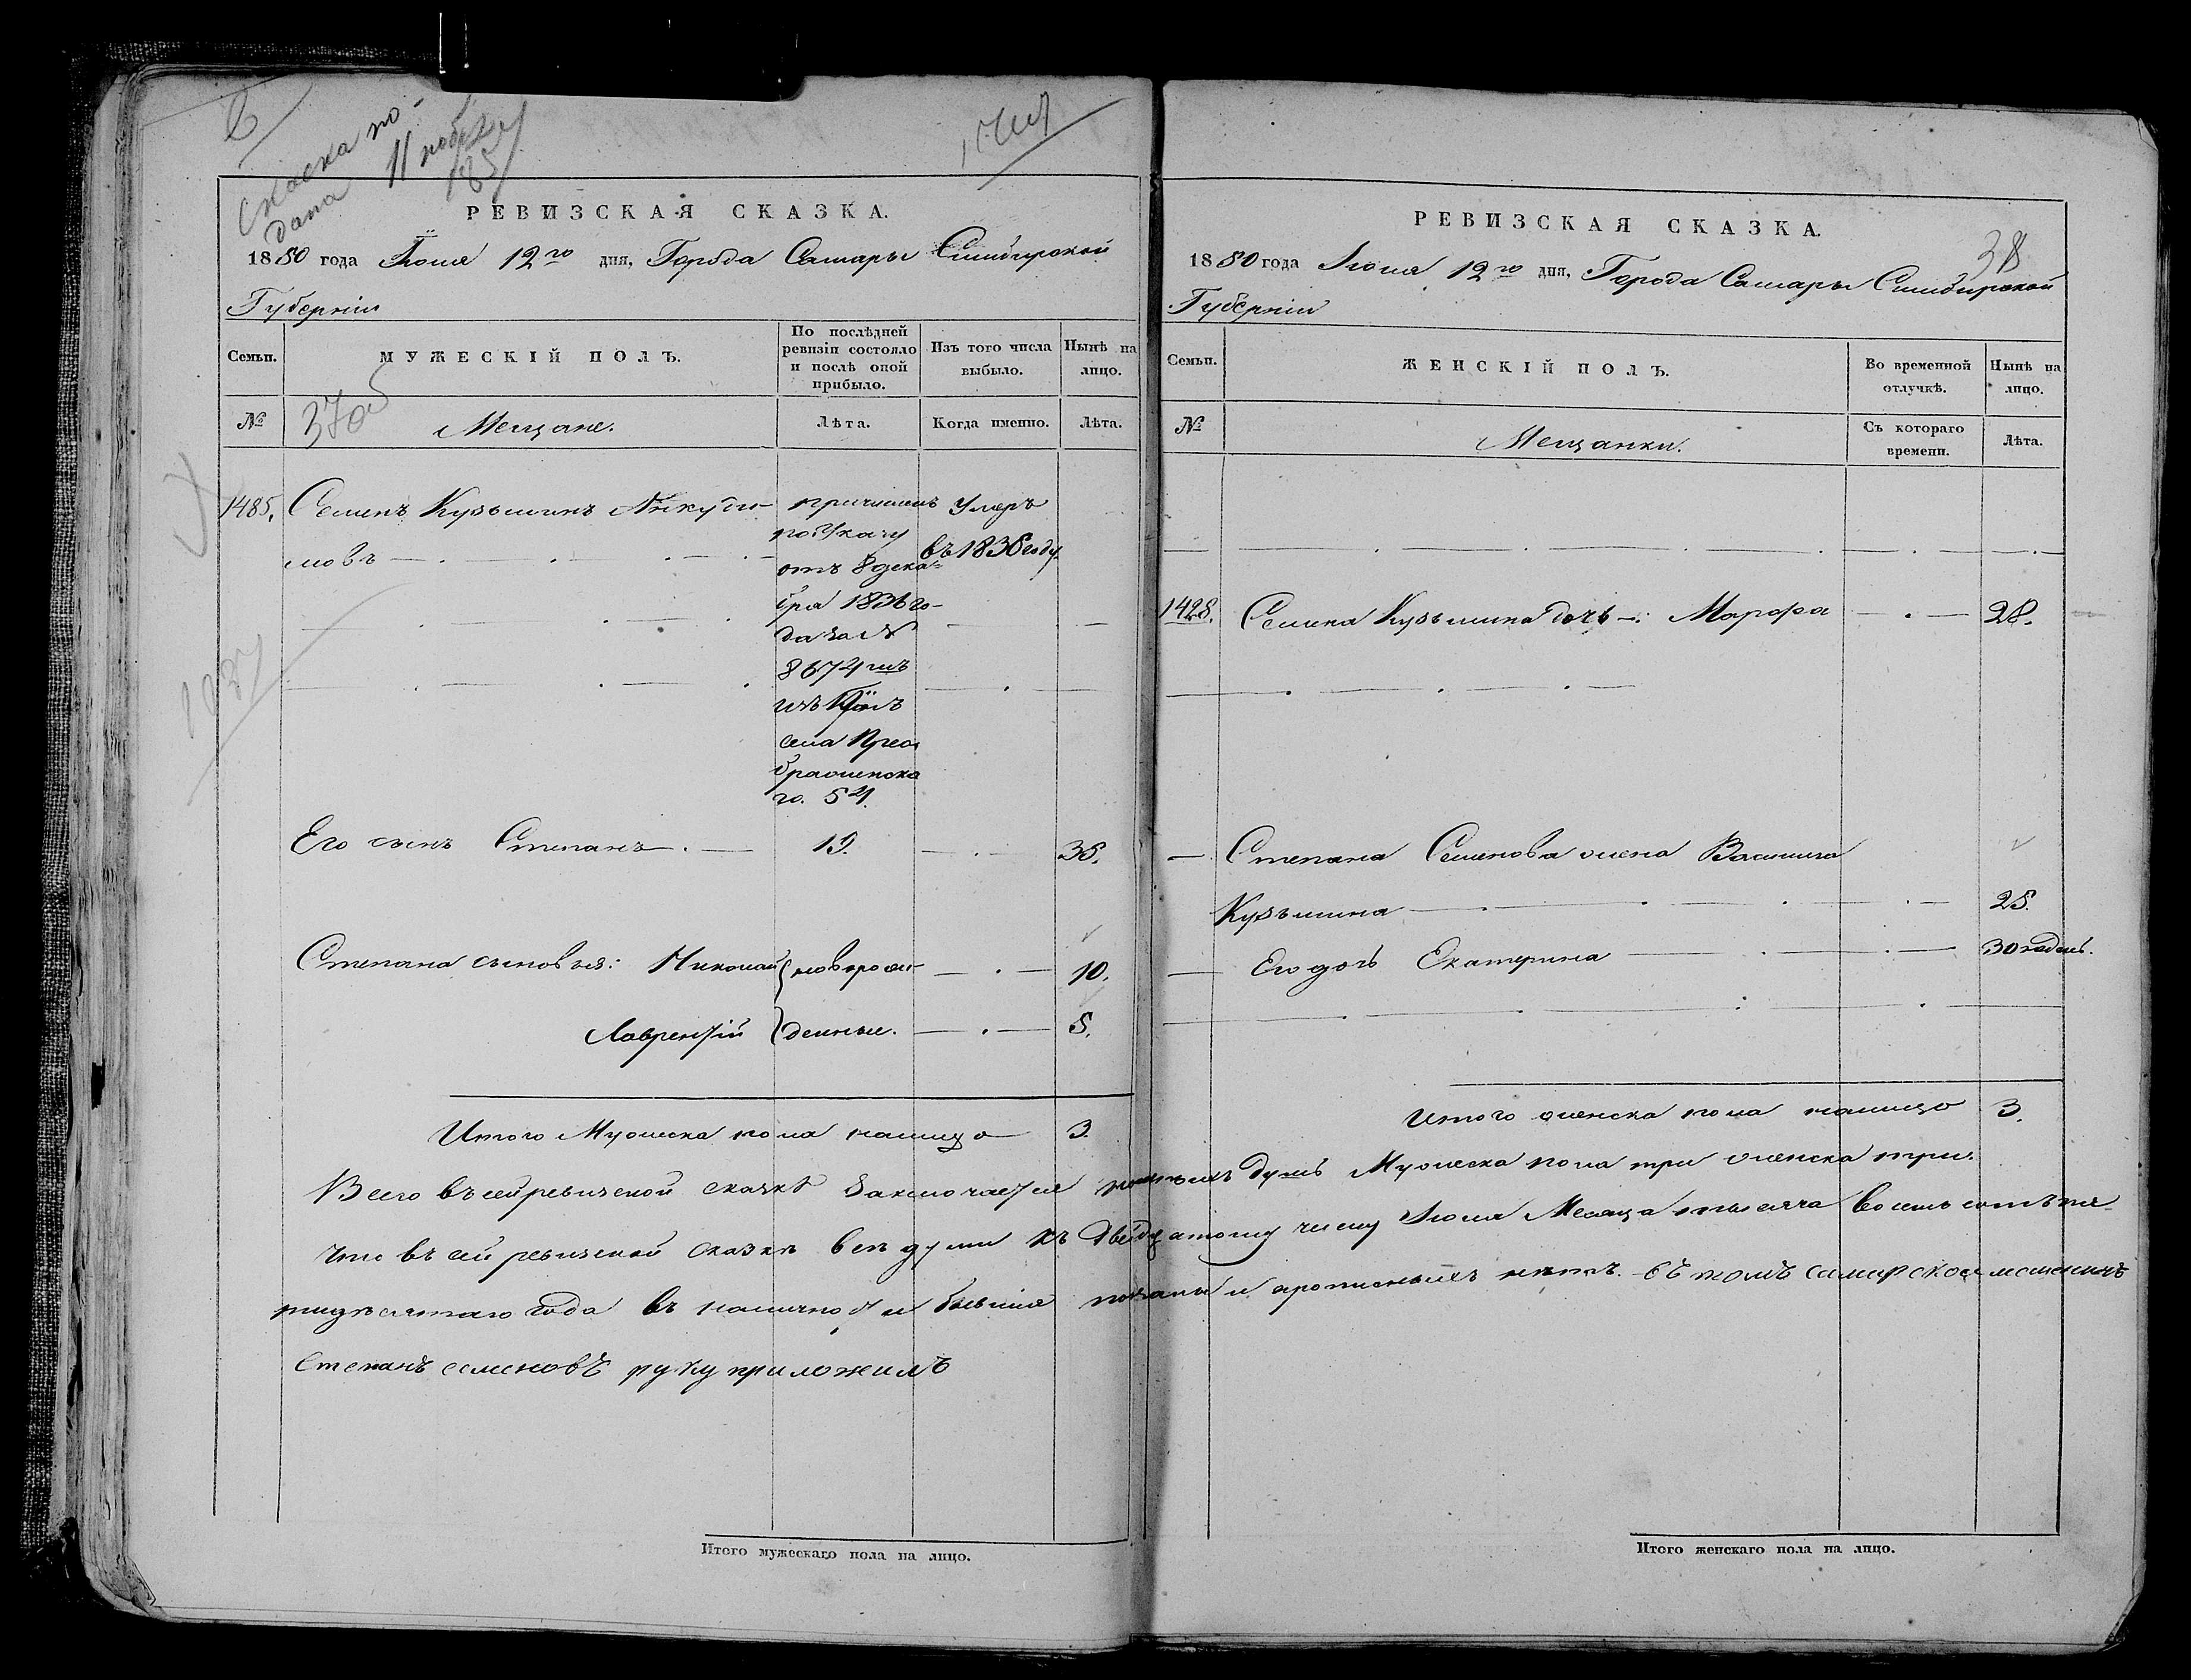 Скаска по
дана 11 ноября
185
РЕВИЗСКАЯ СКАЗКА.
1850 года Июня 12го дня, Города Самары Симбирской
Губернiи
Семьи.
МУЖЕСКIЙ ПОЛЪ.
По послѣдней ревизiи состояло и послѣ оной прибыло.
Изъ того числа выбыло.
Нынѣ на лицо.
№
370
Мещане.
Лѣта.
Когда именно.
Лѣта.
1485. Семенъ Кузьминъ Анкуди-
новъ
причисленъ
по Указу
отъ 8 дека-
бря 1836 го-
да за №
8674мъ
изъ
села Прео
браженска
го. 54.
Умеръ
въ 1836 году.
Его сынъ Степанъ 19. 36.
Степана сыновья: Николай новорож- 10.
Лаврентiй денные. 5.
Итого Мужеска пола налицо 3
РЕВИЗСКАЯ СКАЗКА.
38
1850 года Июня 12го дня, Города Самары Симбирской
Губернiи
Семьи.
ЖЕНСКIЙ ПОЛЪ.
Во временной отлучкѣ.
Нынѣ на лицо.
№
Мещанки.
Съ котораго времени.
Лѣта.
1428. Семена Кузьмина дочь: Марфа 28.
Степана Семенова жена Василиса
Кузьмина 25.
Его дочь Екатерина 30 недель.
Итого женска пола налицо 3.
Всего въ сей ревизской сказкѣ заключается душъ Мужеска пола три женска три.
Что въ сей ревизской сказкѣ все души къ двадцатому числу Июня Месяца тысяча восемь сотъ пя-
тидесятаго года въ наличности бывшiя показаны и прописныхъ нетъ. въ томъ самарской мещенинъ
Степанъ семеновъ руку приложилъ
Итого мужескаго пола на лицо.
Итого женскаго пола на лицо.